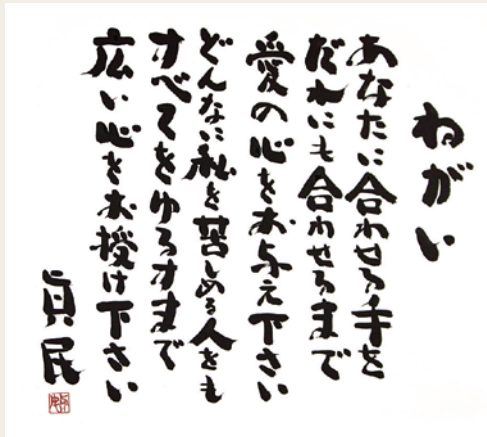 ねがい
あなたに合わせる手を
だれにも合わせるまで
愛の心をお与え下さい
どんなに私を苦しめる人をも
すべてをゆるすまで
広い心をお授け下さい
貞民